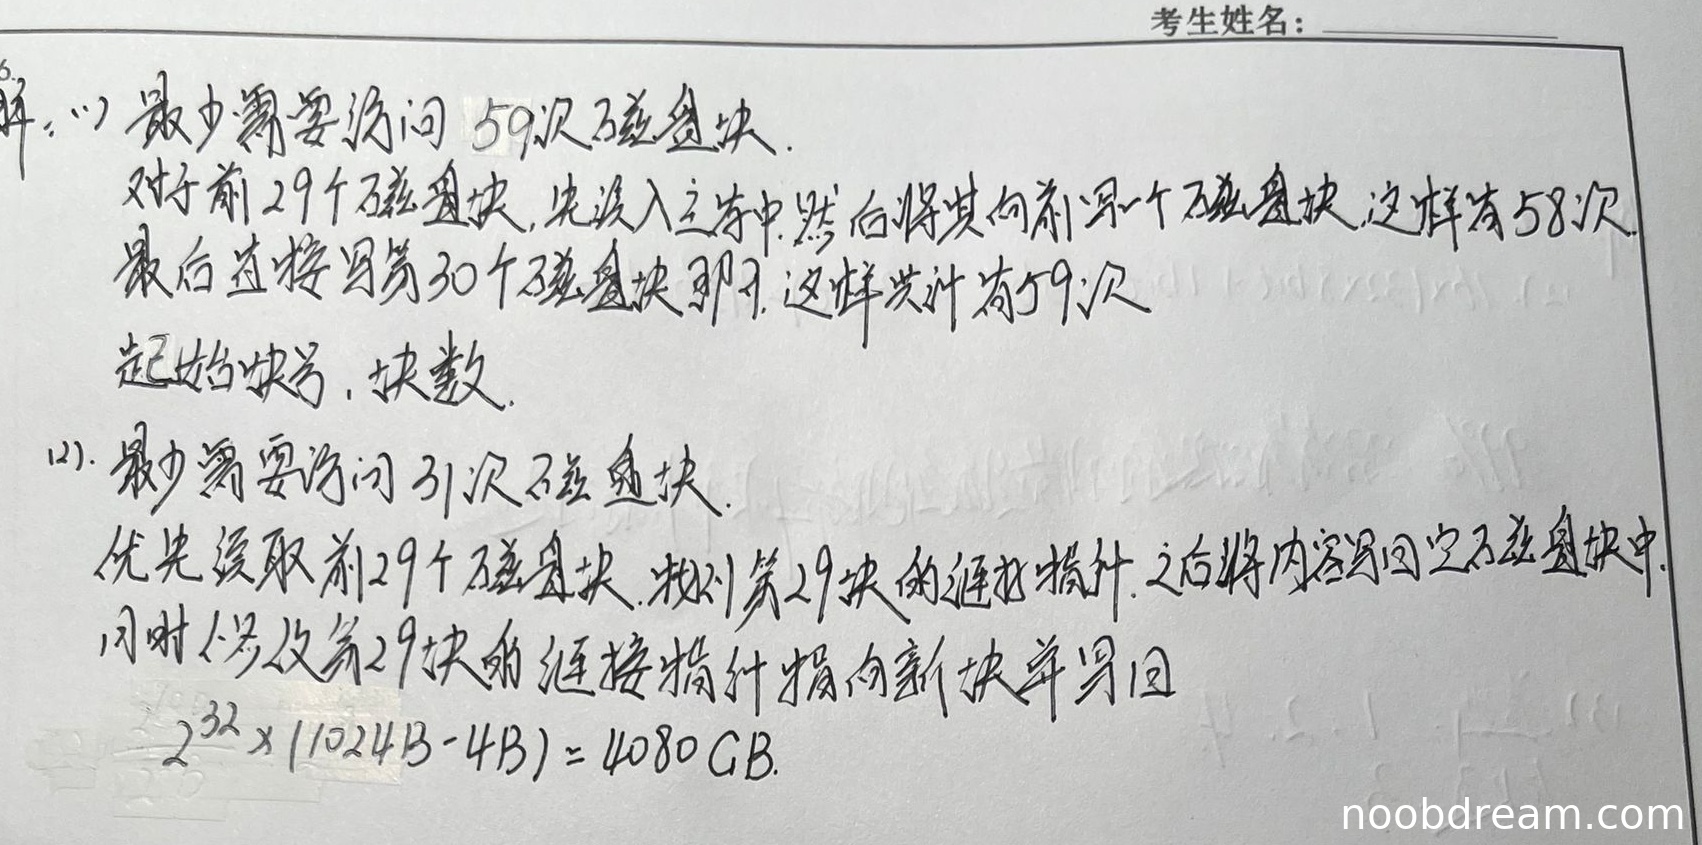 考生姓名:
6.
解:(1) 最少需要访问 59次磁盘块.
对于前29个磁盘块,先读入主存中.然后将其向前写一个磁盘块.这样有58次.
最后直接写第30个磁盘块即可.这样共计有59次
起始块号,块数.
(2). 最少需要访问31次磁盘块.
优先读取前29个磁盘块.找到第29块的链接指针.之后将内容写回空磁盘块中.
同时修改第29块的链接指针指向新块并写回
2^32 × (1024B-4B) = 4080GB.
noobdream.com